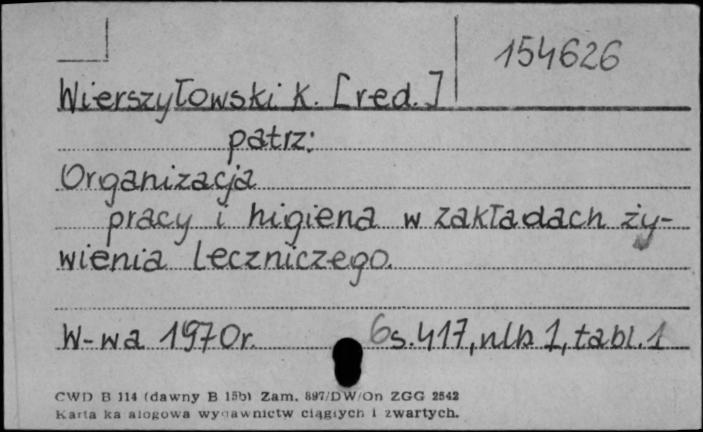 154626
Wierszyłowski K. [red.]
patrz:
Organizacja
pracy i higiena w zakładach ży-
wienia leczniczego.
W-wa 1970r. 6s. 417, nlb 1, tabl. 1
CWD B 114 (dawny B 15b) Zam. 897/DW/On ZGG 2542
Karta ka alogowa wydawnictw ciągłych i zwartych.